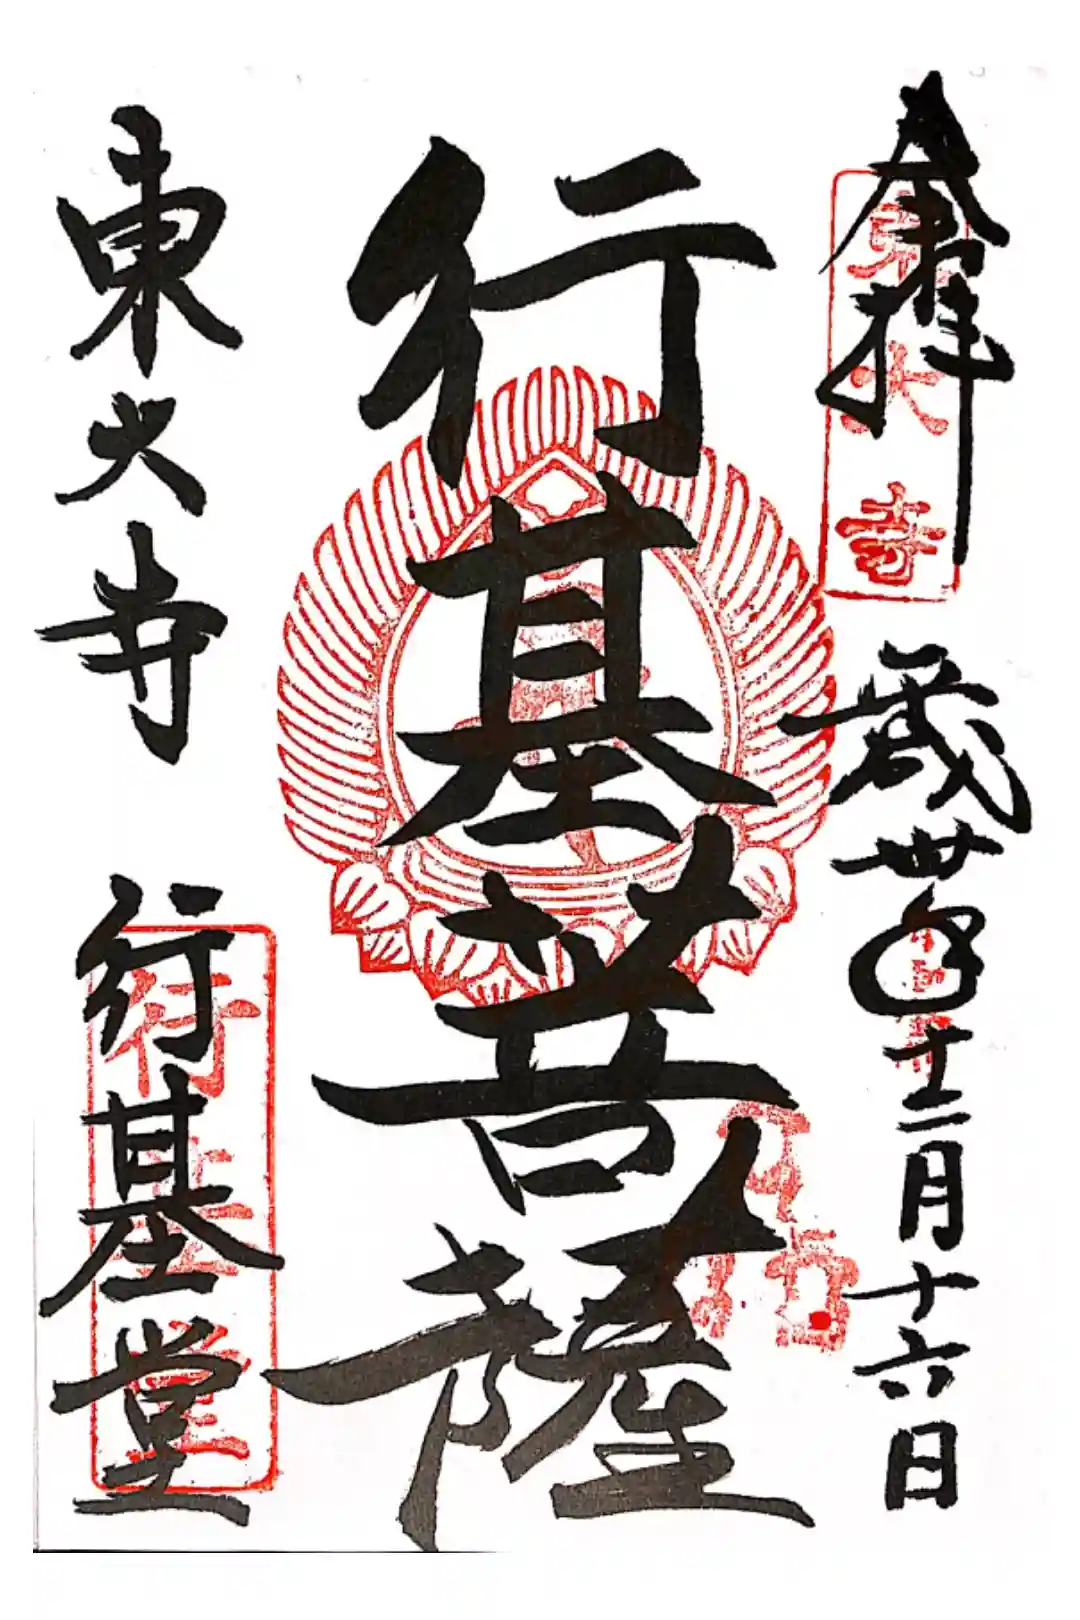 奉拝
平成卅年十二月十六日
東大寺
行基菩薩
東大寺
行基堂
行基堂